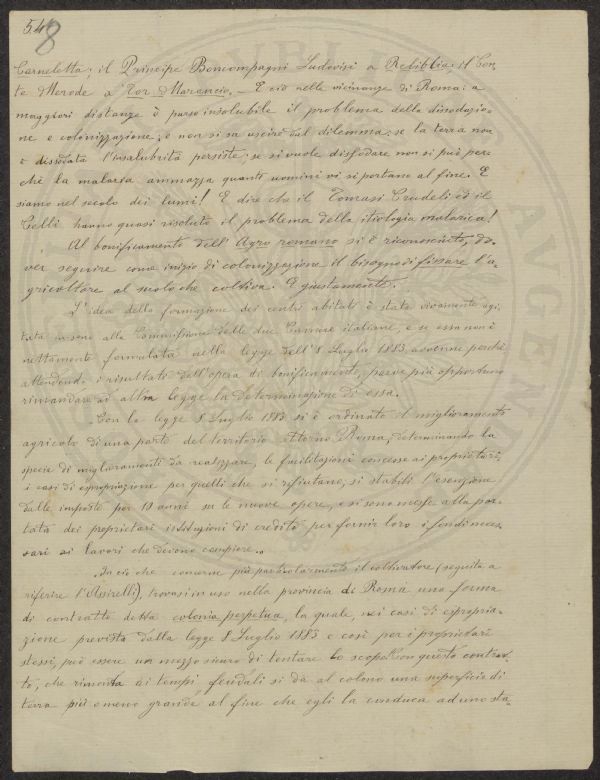 548
Carneletta; il Principe Boncompagni Ludovisi a Rebibbia; il Con-
te Merode a Tor Marancio. - E ciò nelle vicinanze di Roma: a
maggiori distanze è parso insolubile il problema della dissodazio-
ne e colonizzazione; e non si sa uscire dal dilemma: se la terra non
è dissodata l'insalubrità persiste; se si vuole dissodare non si può per-
chè la malaria ammazza quanti uomini vi si portano al fine. E
siamo nel secolo dei lumi! E dire che il Tomasi Crudeli ed il
Celli hanno quasi risoluto il problema della itiologia malarica!
Al bonificamento dell'Agro romano si è riconosciuto, do-
ver seguire come inizio di colonizzazione il bisogno di fissare l'a-
gricoltore al suolo che coltiva. E giustamente.
L'idea della formazione dei centri abitati è stata vivamente agi-
tata in seno alla Commissione delle due Camere italiane, e se essa non è
nettamente formulata nella legge dell'8 Luglio 1883 avvenne perchè
attendendo i risultati dell'opera di bonificamento, parve più opportuno
rimandare ad altra legge la determinazione di essa.
Con la legge 8 Luglio 1883 si è ordinato il miglioramento
agricolo di una parte del territorio attorno Roma, determinando la
specie di miglioramenti da realizzare, le facilitazioni concesse ai proprietari,
i casi di espropriazione per quelli che si rifiutano; si stabilì l'esenzione
dalle imposte per 10 anni su le nuove opere, e si sono messe alla por-
tata dei proprietari istituzioni di credito per fornir loro i fondi neces-
sari ai lavori che devono compiere.
In ciò che concerne più particolarmente il coltivatore (seguita a
riferire l'Assirelli), trovasi in uso nella provincia di Roma una forma
di contratto detta colonia perpetua, la quale, nei casi di espropria-
zione prevista dalla legge 8 Luglio 1883 e così per i proprietari
stessi, può essere un mezzo sicuro di tentare lo scopo. Con questo contrat-
to, che rimonta ai tempi feudali si dà al colono una superficie di
terra più o meno grande al fine che egli la conduca ad uno sta-